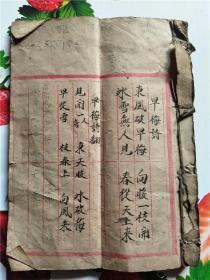 早梅詩
東風破早梅 向暖一枝開
冰雪無人見 春從天上來
早梅詩翻
見開一人春 東天暖 冰破梅
早從雪 枝無上 向風來